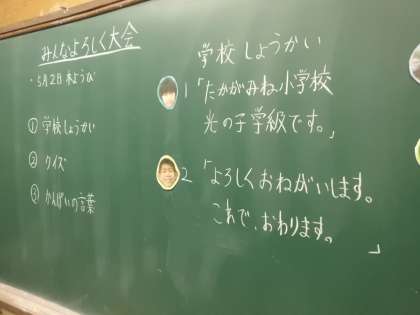 みんなよろしく大会
・5月2日木ようび
① 学校しょうかい
② クイズ
③ かんげいの言葉
学校しょうかい
1 「たかがみね小学校
光の子学級です。」
2 「よろしくおねがいします。
これで、おわります。」